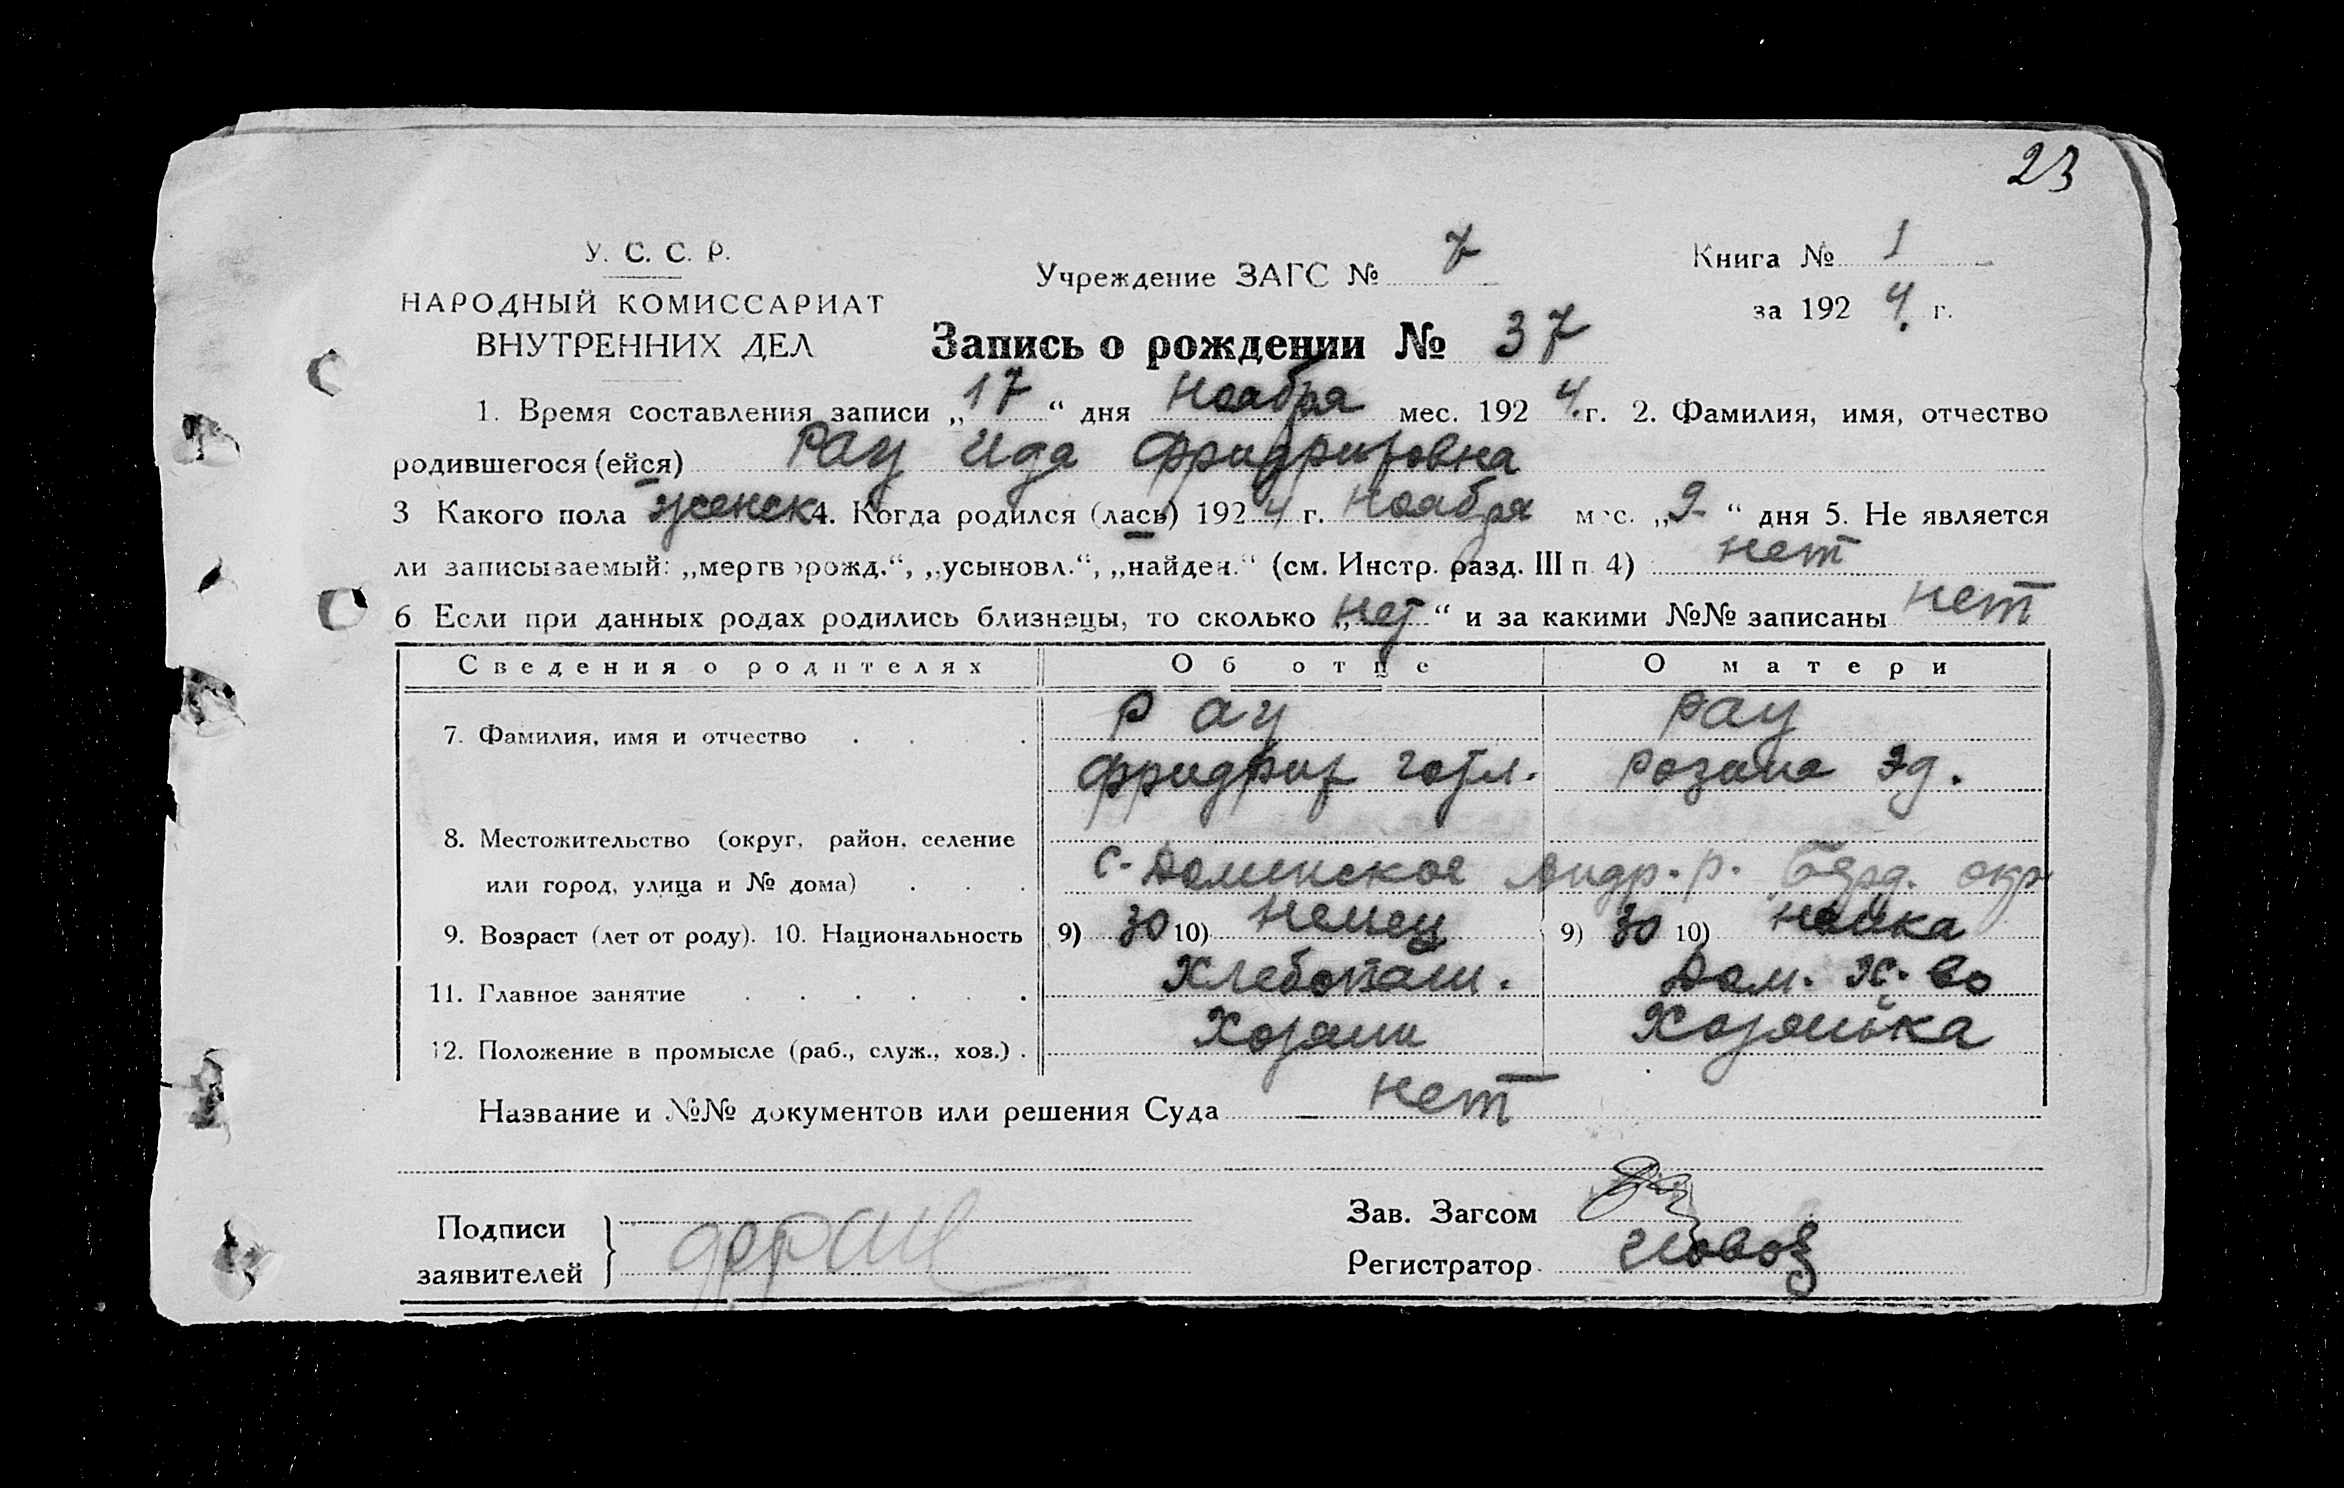 23
У. С. С. Р.
НАРОДНЫЙ КОМИССАРИАТ
ВНУТРЕННИХ ДЕЛ
Учреждение ЗАГС № 7
Книга № 1
за 192 4. г.
Запись о рождении № 37
1. Время составления записи „17“ дня Ноября мес. 192 4. г. 2. Фамилия, имя, отчество
родившегося (ейся) Рау Ида Фридрифовна
3 Какого пола женск 4. Когда родился (лась) 192 4 г. Ноября мес. „2“ дня 5. Не является
ли записываемый: „мертворожд.“, „усыновл.“, „найден.“ (см. Инстр. разд. III п 4) нет
6 Если при данных родах родились близнецы, то сколько „нет“ и за какими №№ записаны нет
Сведения о родителях Об отце О матери
7. Фамилия, имя и отчество Рау Рау
Фридриф готл. Розина Эд.
8. Местожительство (округ, район, селение
или город, улица и № дома) с. Доминское Андр. р. Берд. окр
9. Возраст (лет от роду). 10. Национальность 9) 30 10) Немец 9) 30 10) Немка
11. Главное занятие Хлебопаш. Дом. Х-во
12. Положение в промысле (раб., служ., хоз.) Хозяин Хозяйка
Название и №№ документов или решения Суда нет
Подписи
заявителей
Зав. Загсом
Регистратор